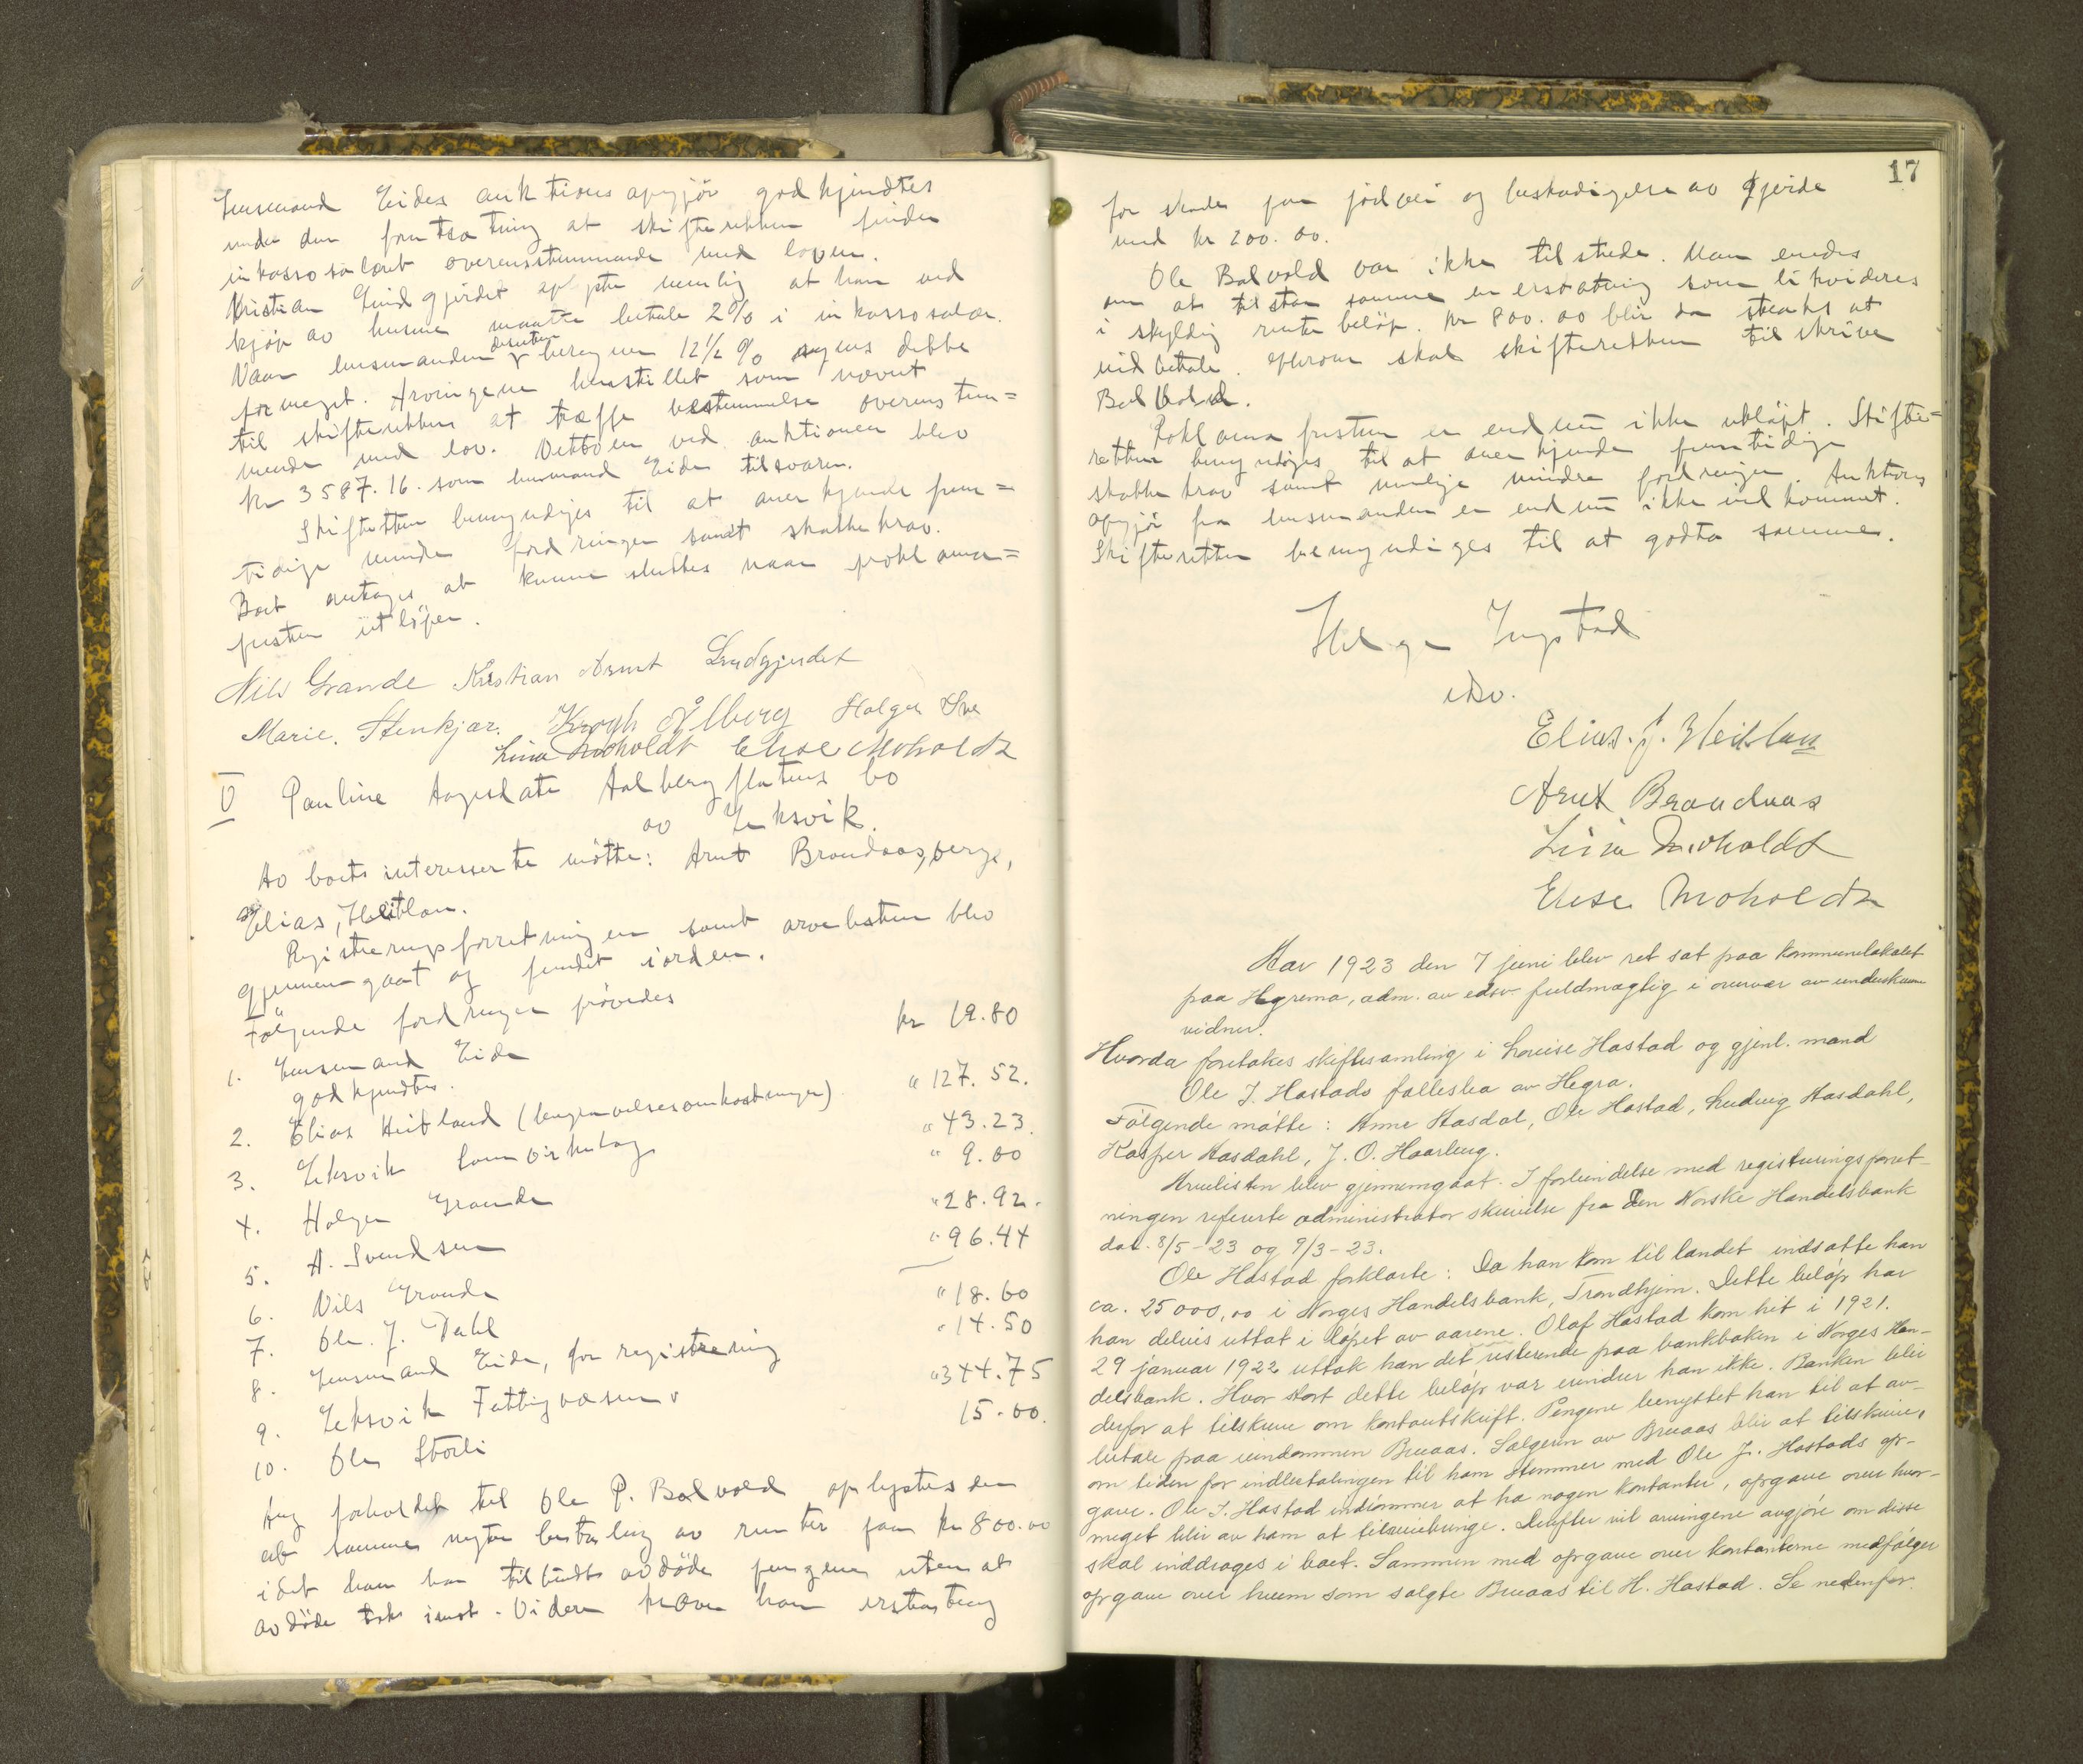 Lensmand Eides auktionsopgjör godkjendtes
under den forutsætning at skifteretten finder
inkassosalæret overensstemmende med loven.
Kristian Lindgjerdet oplyste nemlig at han ved
kjöp av husene maatte betale 2% i inkassosalær.
Naar lensmanden desuten beregner 12½ % synes dette
for meget. Arvingene henstillet som nævnt
til skifteretten at træffe bestemmelse overensstem=
mende med lov. Nettoen ved auktionen blev
kr 3587.16. som lensmand Eide tilsvarer.
Skifteretten bemyndiges til at anerkjende frem=
tidige mindre fordringer samt skattekrav.
Boet antages at kunne sluttes naar proklama=
fristen utlöper.
Nils Grande Kristian Arnt Lindgjerdet
Marie Stenkjær. Krogh Ålberg Holger Sve
Lina Moholdt Elise Moholdt
V Pauline Aagesdatter Aalbergflatens bo
av Leksvik.
Av boets interesserte mötte: Arnt Brandaas, verge,
Elias Heitlan.
Registreringsforretningen samt arvelisten blev
gjennemgaat og fundet iorden.
Fölgende fordringer prövedes
1. Lensmand Eide kr 19.80
godkjendtes.
2. Elias Heitland (begravelsesomkostninger) " 127.52.
3. Leksvik Samvirkelag " 43.23.
4. Holger Grande " 9.00
5. A. Svendsen " 28.92.
6. Nils Grande " 96.44
7. Ole J. Dahl " 18.60
8. Lensmand Eide, for registrering " 14.50
9. Leksvik Fattigvæsen " 344.75
10. Ole Storli 15.00.
Ang forholdet til Ole P. Balvold oplystes den
at samme negter betaling av renter paa kr 800.00
idet han har tilbudt avdöde pengene uten at
avdöde tok imot. Videre kræver han erstatning
17
for skade paa jordvei og beskadigelse av gjerde
med kr 200.00.
Ole Balvold var ikke tilstede. Man enedes
om at tilstaa samme en erstatning som likvideres
i skyldig rentebelöp. kr 800.00 blir da straks at
indbetale. Herom skal skifteretten tilskrive
Balvold.
Proklamafristen er endnu ikke utlöpt. Skifte=
retten bemyndiges til at anerkjende fremtidige
skattekrav samt mulige mindre fordringer. Auktions
opgjör fra lensmanden er endnu ikke indkommet.
Skifteretten bemyndiges til at godta samme.
Helge Ingstad
edsv.
Elias. J. Heitlan
Arnt Brandaas
Lina Moholdt
Elise Moholdt
Aar 1923 den 7 juni blev ret sat paa kommunelokalet
paa Hegremo, adm. av edsv. fuldmægtig i overvær av underskrevne
vidner.
Hvorda foretakes skiftesamling i Louise Hastad og gjenl. mand
Ole J. Hastads fællesbo av Hegra.
Fölgende mötte: Anne Aasdal, Ole Hastad, Ludvig Aasdahl,
Kasper Aasdahl, J. O. Haarberg.
Arvelisten blev gjennemgaat. I forbindelse med registreringsforret-
ningen refererte administrator skrivelse fra Den Norske Handelsbank
dat. 8/5-23 og 9/3-23.
Ole Hastad forklarte: Da han kom til landet indsatte han
ca. 25000,00 i Norges Handelsbank, Trondhjem. Dette belöp har
han delvis uttat i löpet av aarene. Olaf Hastad kom hit i 1921.
29 januar 1922 uttok han det resterende paa bankboken i Norges Han-
delsbank. Hvor stort dette belöp var erindrer han ikke. Banken blir
derfor at tilskrive om kontoutskrift. Pengene benyttet han til at av-
betale paa eiendommen Bruaas. Sælgeren av Bruaas blir at tilskrive,
om tiden for indbetalingen til ham stemmer med Ole J. Hastads op-
gave. Ole J. Hastad indrömmer at ha nogen kontanter, opgave over hvor-
meget blir av ham at tilveiebringe. Derefter vil arvingene avgjöre om disse
skal inddrages i boet. Sammen med opgave over kontanterne medfölger
opgave over hvem som solgte Bruaas til H. Hastad. Se nedenfor.